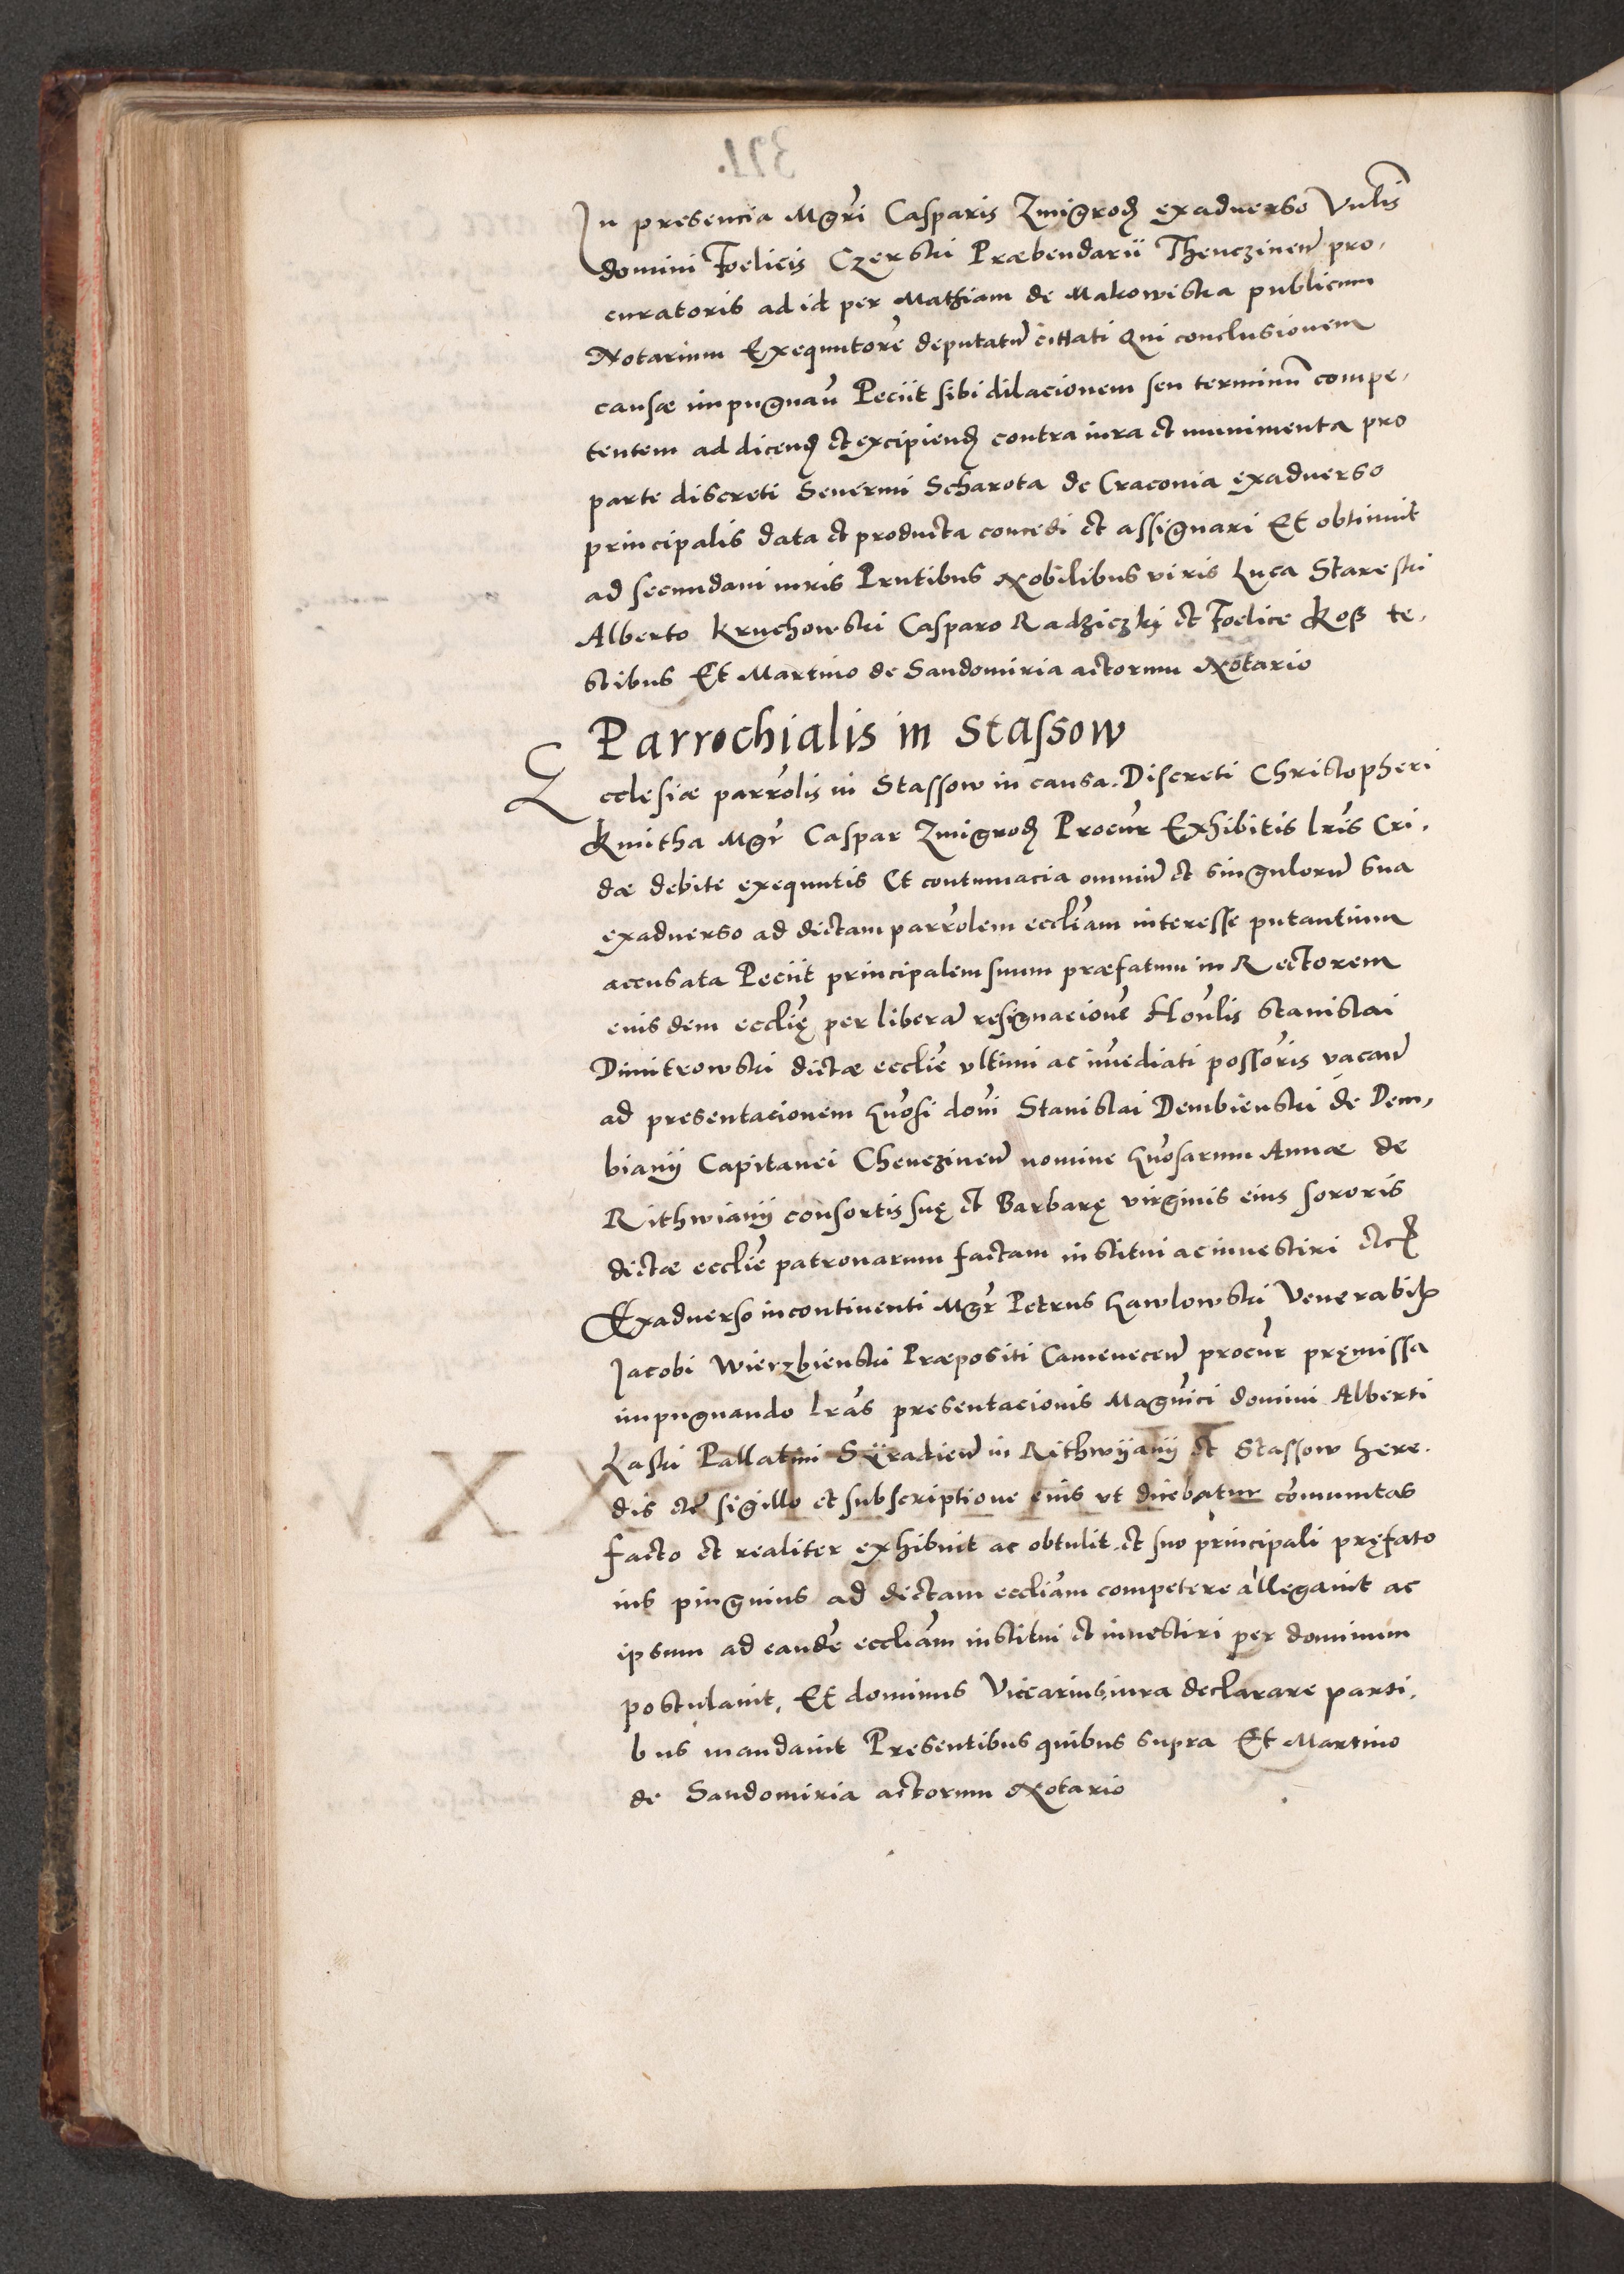 In presencia Mgri Casparis Zmigrod exaduerso Vnlis
domini Foelicis Czerski Præbendarii Thenczinen pro,
curatoris ad id per Mathiam de Makowiska publicum
Notarium Exequutore deputatu cittati Qui conclusionem
causæ impugnan Peciit sibi dilacionem seu terminu compe,
tentem ad dicend et excipiend contra iura et munimenta pro
parte discreti Seuerini Scharota de Cracouia exaduerso
principalis data et producta concedi et assignari Et obtinuit
ad secundam iuris Prntibus Nobilibus viris Luca Stareski
Alberto Kruchowski Casparo Radziczkÿ et Foelice Koss te,
stibus Et Martino de Sandomiria actorum Notario
Parrochialis in Stassow
Ecclesiæ parrolis in Stassow in causa. Discreti Christopheri
Kmitha Mgr Caspar Zmigrod Procur Exhibitis lris Cri,
dæ debite exequutis Et contumacia omniu et singuloru sua
exaduerso ad dictam parrolem eccleam interesse putantium
accusata Peciit principalem suum præfatum in Rectorem
eius dem ecclię per libera resignacione Honlis Stanislai
Dmitrowski dictæ ecclie vltimi ac imediati possoris vacan
ad presentacionem gnosi doni Stanislai Dembienski de Dem,
bianÿ Capitanei Chenczinen nomine gnosarum Annæ de
Rithwianÿ consortis suę et Barbarę virginis eius sororis
dictæ ecclie patronarum factam institui ac inuestiri etc
Exaduerso incontinenti Mgr Petrus Gawlowski Venerabil
Jacobi Wierzbienski Præpositi Camenecen procur pręmissa
impugnando lras presentacionis Magnici domini Alberti
Laski Pallatini Sÿradien in Rithwÿanÿ et Stassow here,
dis etc sigillo et subscriptione eius vt dicebatur comunitas
facto et realiter exhibuit ac obtulit. et suo principali pręfato
ius pinguius ad dictam eccliam competere allegauit ac
ipsum ad eande eccliam institui et inuestiri per dominum
postulauit. Et dominus Vicarius iura declarare parti,
bus mandauit Presentibus quibus supra Et Martino
de Sandomiria actorum Notario